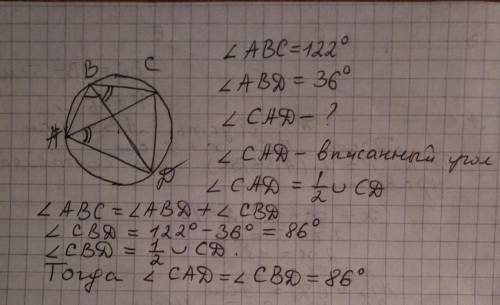 B C
A
D
∠ABC=122°
∠ABD=36°
∠CAD-?
∠CAD-вписанный угол
∠CAD=1/2 ∪ CD
∠ABC=∠ABD+∠CBD
∠CBD=122°-36°=86°
∠CBD=1/2 ∪ CD.
Тогда ∠CAD=∠CBD=86°